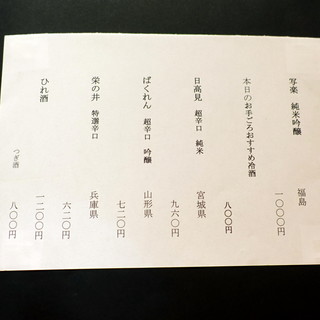 写楽 純米吟醸
福島
一〇〇〇円
本日のお手ごろおすすめ冷酒
八〇〇円
日高見 超辛口 純米
宮城県
九六〇円
ばくれん 超辛口 吟醸
山形県
七二〇円
栄の井 特選辛口
兵庫県
六二〇円
ひれ酒
一二〇〇円
つぎ酒
八〇〇円